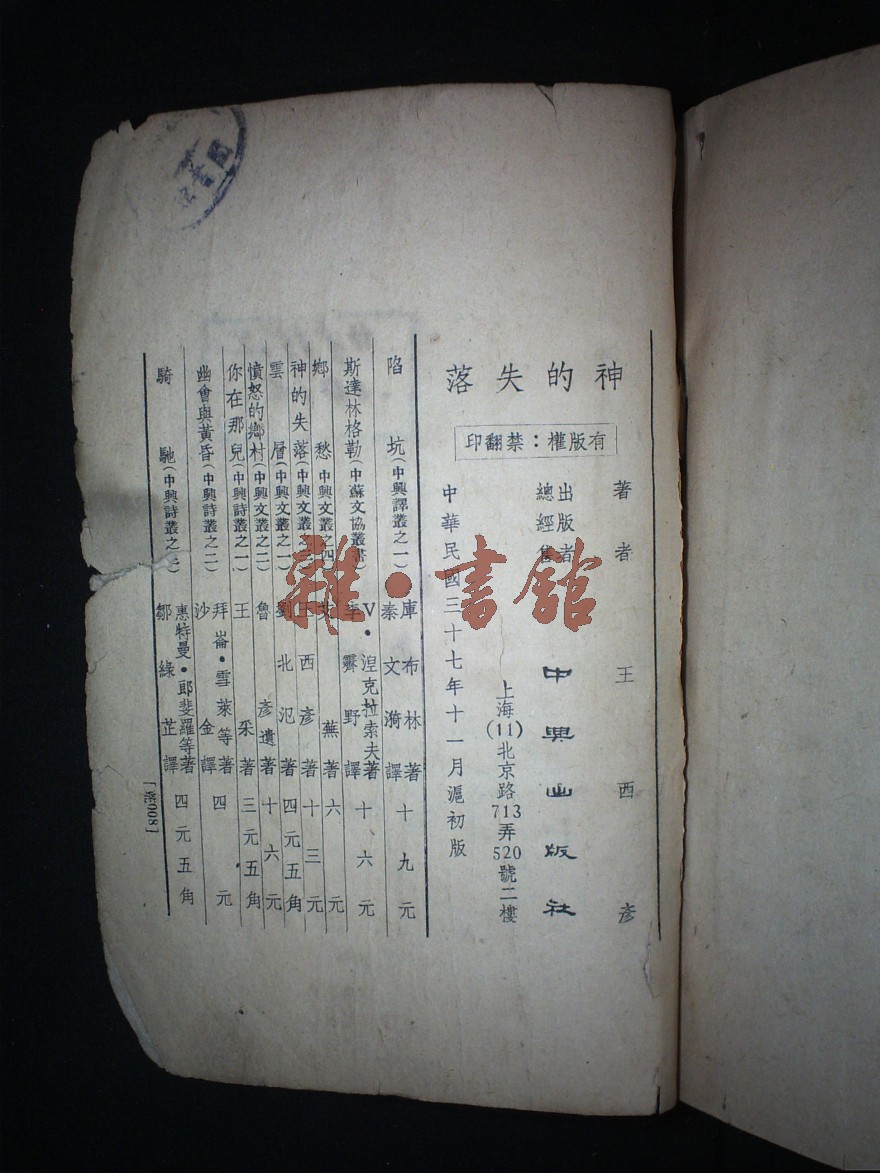 神的失落
有版權：禁翻印
著者 王西彥
出版者
總經售
中興出版社
上海(11)北京路713弄520號二樓
中華民國三十七年十一月滬初版
陷坑(中興譯叢之一) 庫布林著 秦文漪譯 十九元
斯達林格勒(中蘇文協叢書) V・涅克拉索夫著 李霽野譯 十六元
鄉愁(中興文叢之四) 艾蕪著 六元
神的失落(中興文叢之三) 王西彥著 十三元
雲層(中興文叢之一) 劉北汜著 四元五角
憤怒的鄉村(中興文叢之二) 魯彥遺著 十六元
你在那兒(中興詩叢之一) 王采著 三元五角
幽會與黃昏(中興詩叢之二) 拜崙・雪萊等著 沙金譯 四元
騎馳(中興詩叢之三) 惠特曼・郎斐羅等著 鄒綠芷譯 四元五角
雜・書館